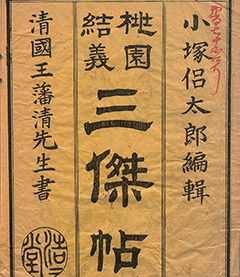 小塚侶太郎編輯
桃園
結義
三傑帖
清國王藩清先生書